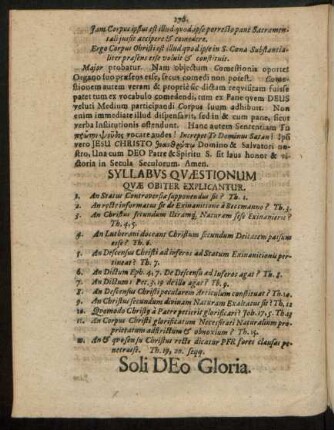 276.
Jam Corpus ipsius est illud quod ipse porrecto pane Sacramen-
tali jussit accipere & comedere.
Ergo Corpus Christi est illud quod ipse in S. Cœna Substantia-
liter præsens esse voluit & constituit.
Major probatur. Nam objectum Comestionis oportet
Organo suo præsens esse, secus comedi non potest. Come-
stionem autem veram & propriè sic dictam requisitam fuisse
patet tum ex vocabulo comedendi, tum ex Pane quem DEUS
veluti Medium participandi Corpus suum adhibuit. Non
enim immediatè illud dispensarit, sed in & cum pane, sicut
verba Institutionis ostendunt. Hanc autem Sententiam Tu
vocare audes! Increpet Te Dominus Satan! Ipsi
vero JESU CHRISTO Domino & Salvatori no-
stro, Una cum DEO Patre & Spiritu S. sit laus honor & vi-
ctoria in Secula Seculorum. Amen.
SYLLABVS QVÆSTIONUM
QVÆ OBITER EXPLICANTUR.
1. An Status Controversiæ supponendus sit? Th. 1.
2. An recte informatus sit de Exinanitione à Bocmanno? Th. 3.
3. An Christus secundum Utramq; Naturam sese Exinanierit?
Th. 4.5.
4. An Lutherani doceant Christum secundum Deitatem passum
esse? 6.
5. An Descensus Christi ad inferos ad Statum Exinanitionis per-
tineat? Th. 7.
6. An Dictum Eph. 4, 7. De Descensu ad inferos agat? Th. 8.
7. An Dictum 1 Pet. 3, 19 de illo agat? Th. 9.
8. An Descensus Christi peculiarem Articulum constituat? Th. 10.
9. An Christus secundum divinam Naturam Exaltatus sit? Th. 11
10. Quomodo Christus à Patre petierit glorificari? Joh. 17, 5. Th. 15
11. An Corpus Christi glorificatum Necessitati Naturalium pro-
prietatum adstrictum & obnoxium? Th.
12. An & quo sensu Christus recte dicatur PER fores clausas pe-
netrasse. Th. 19, 20. seqq.
Soli DEo Gloria.